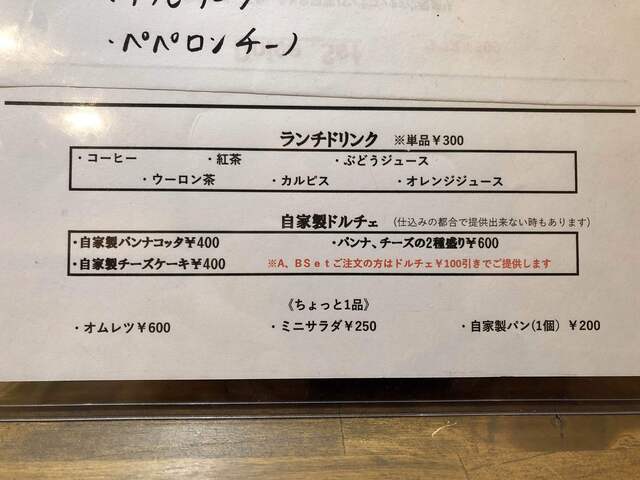 ・ペペロンチーノ
ランチドリンク ※単品¥300
・コーヒー ・紅茶 ・ぶどうジュース
・ウーロン茶 ・カルピス ・オレンジジュース
自家製ドルチェ (仕込みの都合で提供出来ない時もあります)
・自家製パンナコッタ¥400 ・パンナ、チーズの2種盛り¥600
・自家製チーズケーキ¥400 ※A、BSetご注文の方はドルチェ¥100引きでご提供します
《ちょっと1品》
・オムレツ¥600 ・ミニサラダ¥250 ・自家製パン(1個) ¥200